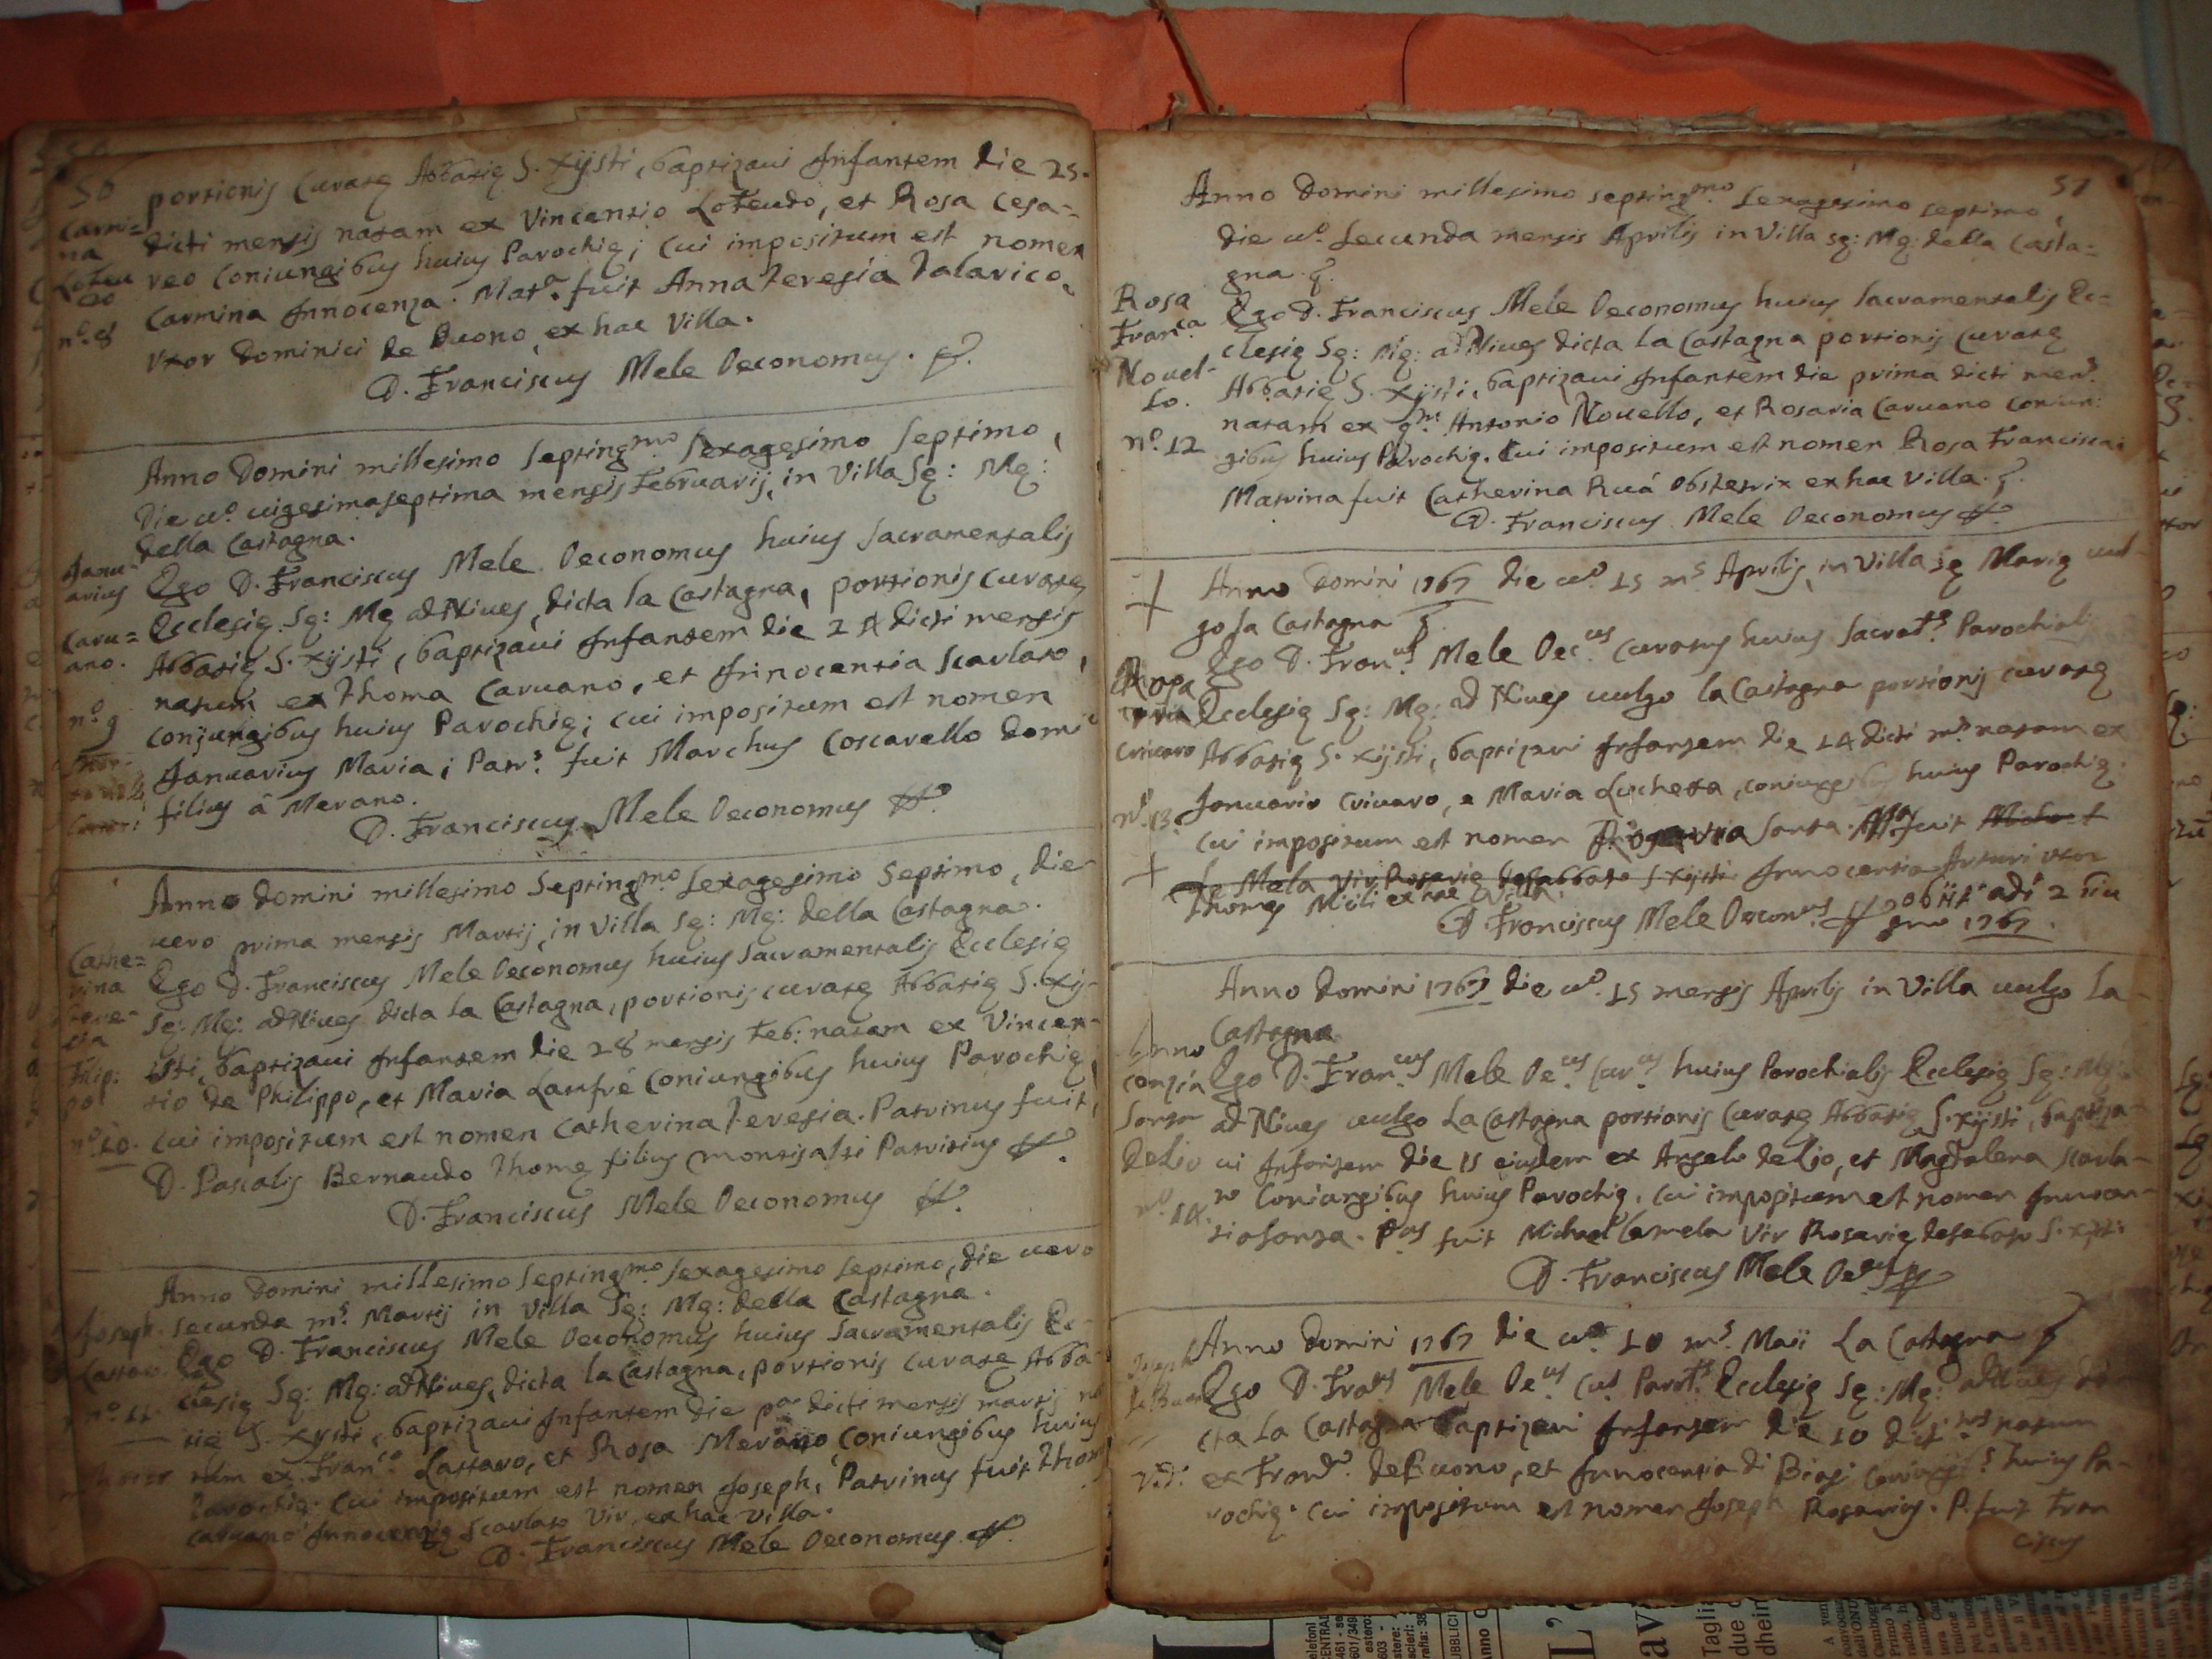 56
portionis Curatę Abbatię S. Xijsti, baptizaui Infantem die 25.
dicti mensis natam ex Vincentio Loteudo, et Rosa Cesa=
reo Coniungibus huius Parochię; cui impositum est nomen
Carmina Innocenza. Mat.ª fuit Anna Teresia Talarico,
Vxor Dominici de Buono, ex hac Villa.
D. Franciscus Mele Oeconomus.
Carmi=
na
Loteu
do
n.º 8
Anno Domini millesimo Septing.mo Sexagesimo Septimo,
die u.º uigesimaseptima mensis Februarij, in Villa Sę: Mę:
della Castagna.
Ego D. Franciscus Mele Oeconomus huius Sacramentalis
Ecclesię Sę: Mę ad Niues, dicta la Castagna, portionis Curatę
Abbatię S. Xijsti, baptizaui Infantem die 24 dicti mensis
natum ex Thoma Caruano, et Innocentia Scarlato,
conjungibus huius Parochię; cui impositum est nomen
Januarius Maria; Patr.s fuit Marchus Coscarello Domi.ci
filius à Merano.
D. Franciscus Mele Oeconomus
Janu=
arius
Caru=
ano.
n.º 9
Anno Domini millesimo Septing.mo Sexagesimo Septimo, die
uero prima mensis Martij, in Villa Sę: Mę: della Castagna.
Ego D. Franciscus Mele Oeconomus huius Sacramentalis Ecclesię
Sę: Mę: ad Niues dicta la Castagna, portionis curatę Abbatię S. Xij-
isti, baptizaui Infantem die 28 mensis Feb: natam ex Vincen-
tio de Philippo, et Maria Lanfré Coniungibus huius Parochię,
cui impositum est nomen Catherina Teresia. Patrinus fuit
D. Pascalis Bernaudo Thomę filius Montisalti Patritius
D. Franciscus Mele Oeconomus
Cathe=
rina
Tere-
sia
Filip:
po
n.º 10.
Anno Domini millesimo Septing.mo Sexagesimo Septimo, die uero
secunda m.s Martij in Villa Sę: Mę: della Castagna.
Ego D. Franciscus Mele Oeconomus huius Sacramentalis Ec-
clesię Sę: Mę: ad Niues, dicta la Castagna, portionis curatę Abba
tię S. Xysti, baptizaui Infantem die p.a dicti mensis martij na
tum ex Fran.co Lattaro, et Rosa Merano, Coniungibus huius
Parochię. Cui impositum est nomen Joseph, Patrinus fuit Thom
Caruano Innocentię Scarlato Vir, ex hac Villa.
D. Franciscus Mele Oeconomus.
Joseph
n.º 11.
57
Anno Domini millesimo septing.mo Sexagesimo septimo,
die u.º Secunda mensis Aprilis in Villa Sę: Mę: della Casta=
gna.
Ego D. Franciscus Mele Oeconomus huius Sacramentalis Ec=
clesię Sę: Mę: ad Niues dicta La Castagna portionis Curatę
Abbatię S. Xijsti, baptizaui Infantem die prima dicti men.s
natam ex q.m Antonio Nouello, et Rosaria Caruano coniun:
gibus huius Parochię. Cui impositum est nomen Rosa Francisca.
Matrina fuit Catherina Ruá Obstetrix ex hac Villa.
D. Franciscus Mele Oeconomus
Rosa
Fran.ca
Nouel-
lo.
n.º 12
Anno Domini 1767 die u.º 15 m.s Aprilis, in Villa Sę Marię uul-
go La Castagna
Ego D. Fran.us Mele Oec.us Curatus huius Sacra.t.s Parochial.
Ecclesię Sę: Mę: ad Niues uulgo la Castagna portionis curatę
Abbatię S. Xijsti, baptizaui Infantem die 14 dicti m.s natam ex
Januario Criuaro, e Maria Luchetta, coniugibus huius Parochię.
cui impositum est nomen Santa. M.a fuit Michael
la Mela Vir Rosarię S. Xijsti Innocentia Arturi vxor
Thomę Miceli ex hac Villa.
D. Franciscus Mele Oeconus. obijt adì 2 Giu
gno 1767.
Criuaro
n.º 13.
Anno Domini 1767 die u.º 15 mensis Aprilis in Villa uulgo La
Castagna
Ego D. Fran.cus Mele Oe.us Cur.us huius Parochialis Ecclesię Sę: Mę:
ad Niues uulgo La Castagna portionis Curatę Abbatię S. Xijsti, baptiza-
ui Infantem die 15 eiusdem ex Angelo deLio, et Magdalena Scarla-
to Coniungibus huius Parochię, cui impositum est nomen Innocen-
tia Santa. P.us fuit Michael Lamela Vir Rosarię S. Xijsti
D. Franciscus Mele Oe.us
Inno
conzia
Santa
DeLio
n.º 14.
Anno Domini 1767 die u.º 10 m.s Maii La Castagna
Ego D. Fra.us Mele Oe.us Cu.s Paro.t.s Ecclesię Sę: Mę: ad Niues di
cta La Castagna baptizaui Infantem die 10 dict. m.s natum
ex Fran.co DeBuono, et Innocentia di Biasi huius Pa-
rochię. cui impositum est nomen Joseph Rosarius. P. fuit Fran
ciscus
Joseph